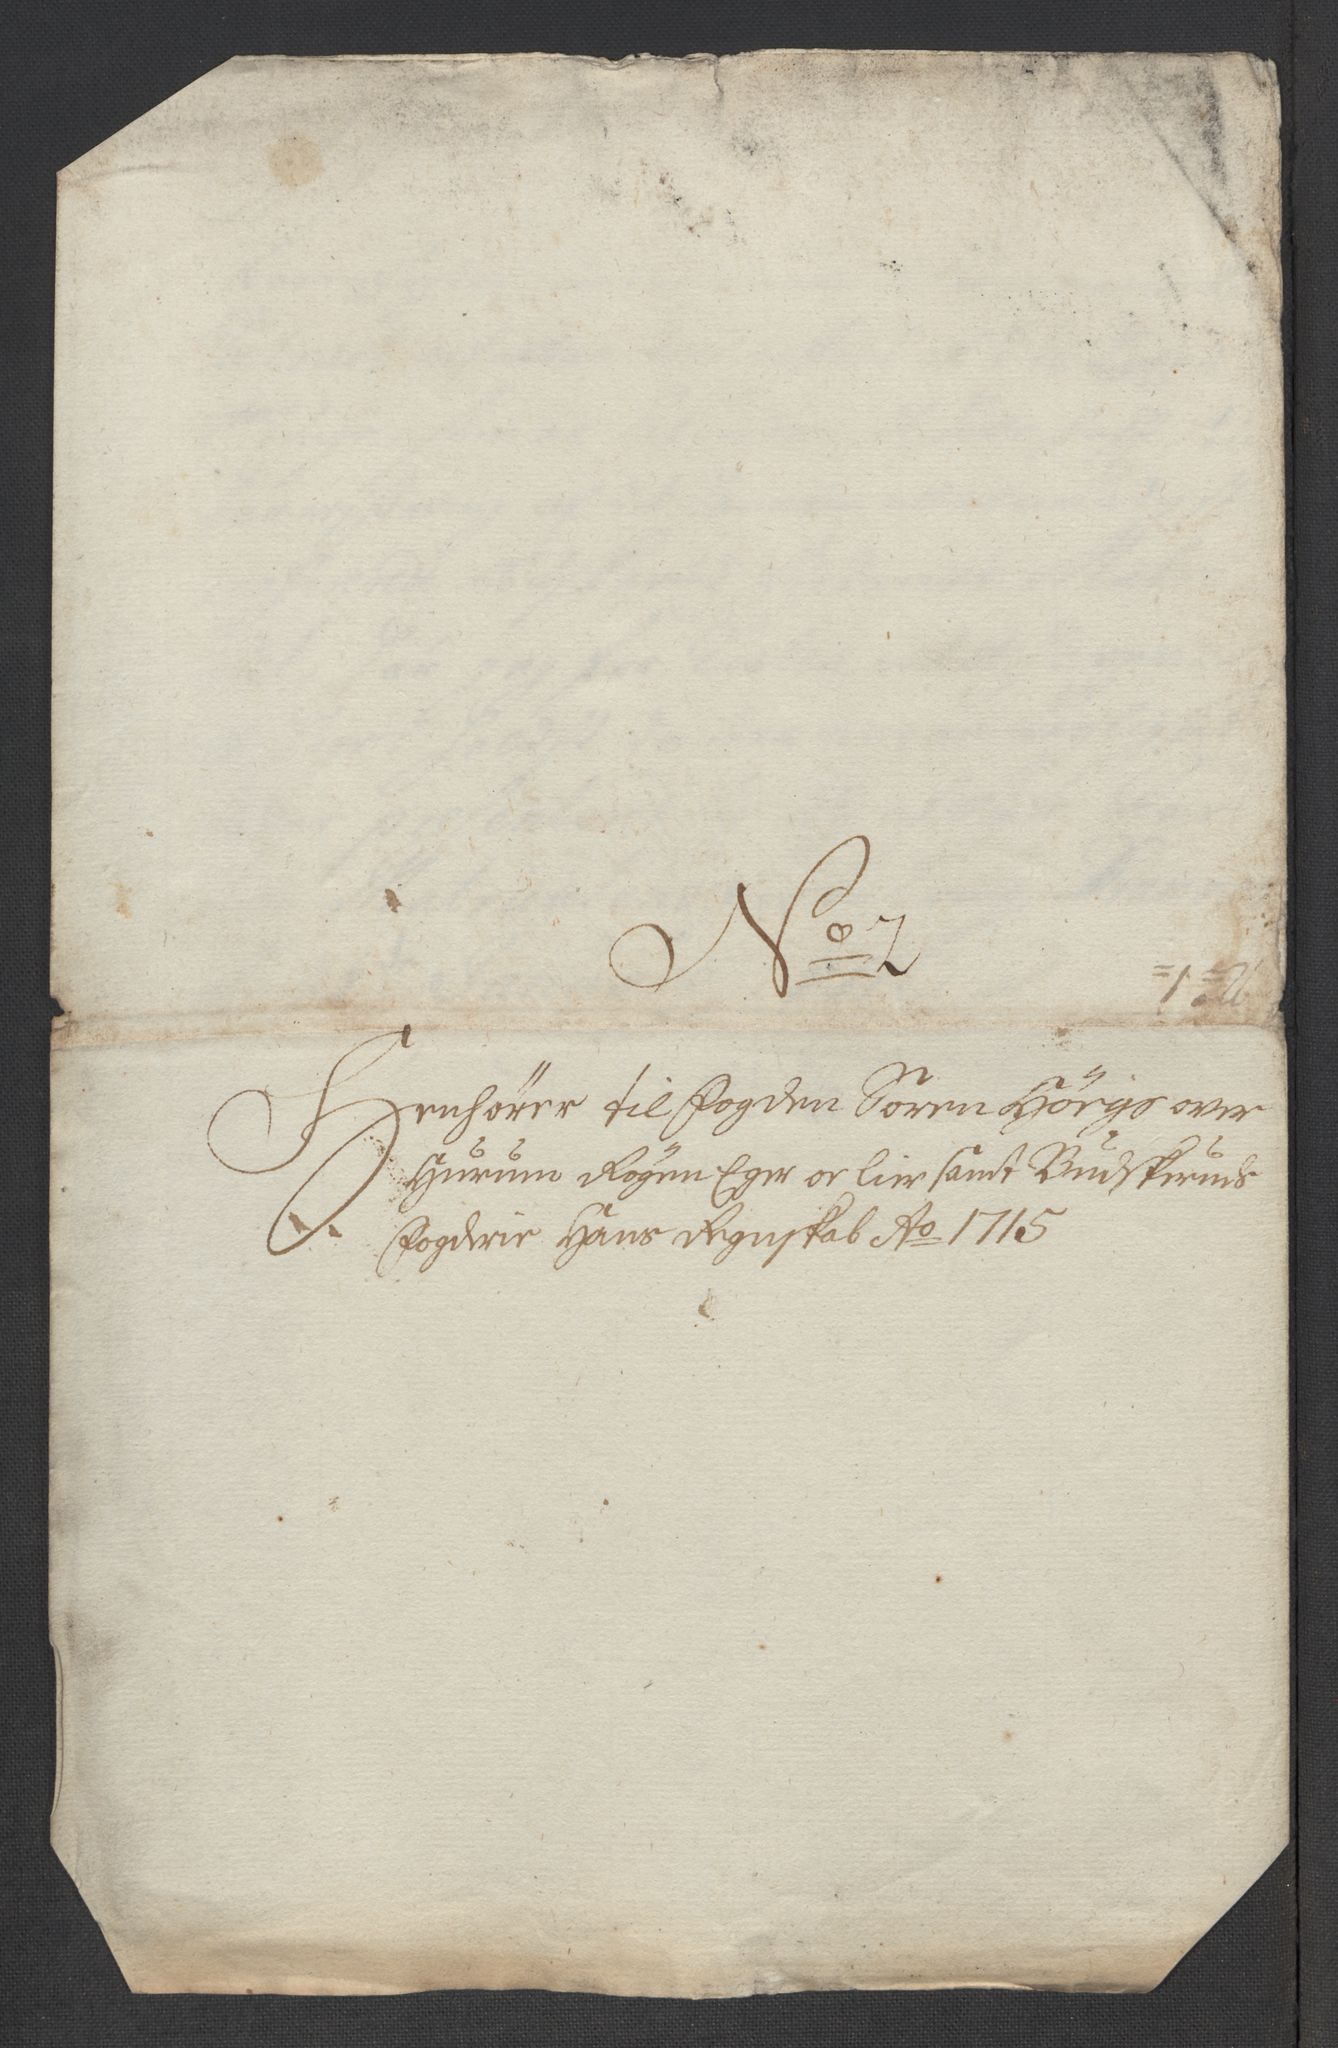 No 2
Henhörer til Fogden Sören Hörigs over
Hurum Röyen Eger oc Lier samt Budskeruds
Fogderie Hans Regnskab Ao 1715